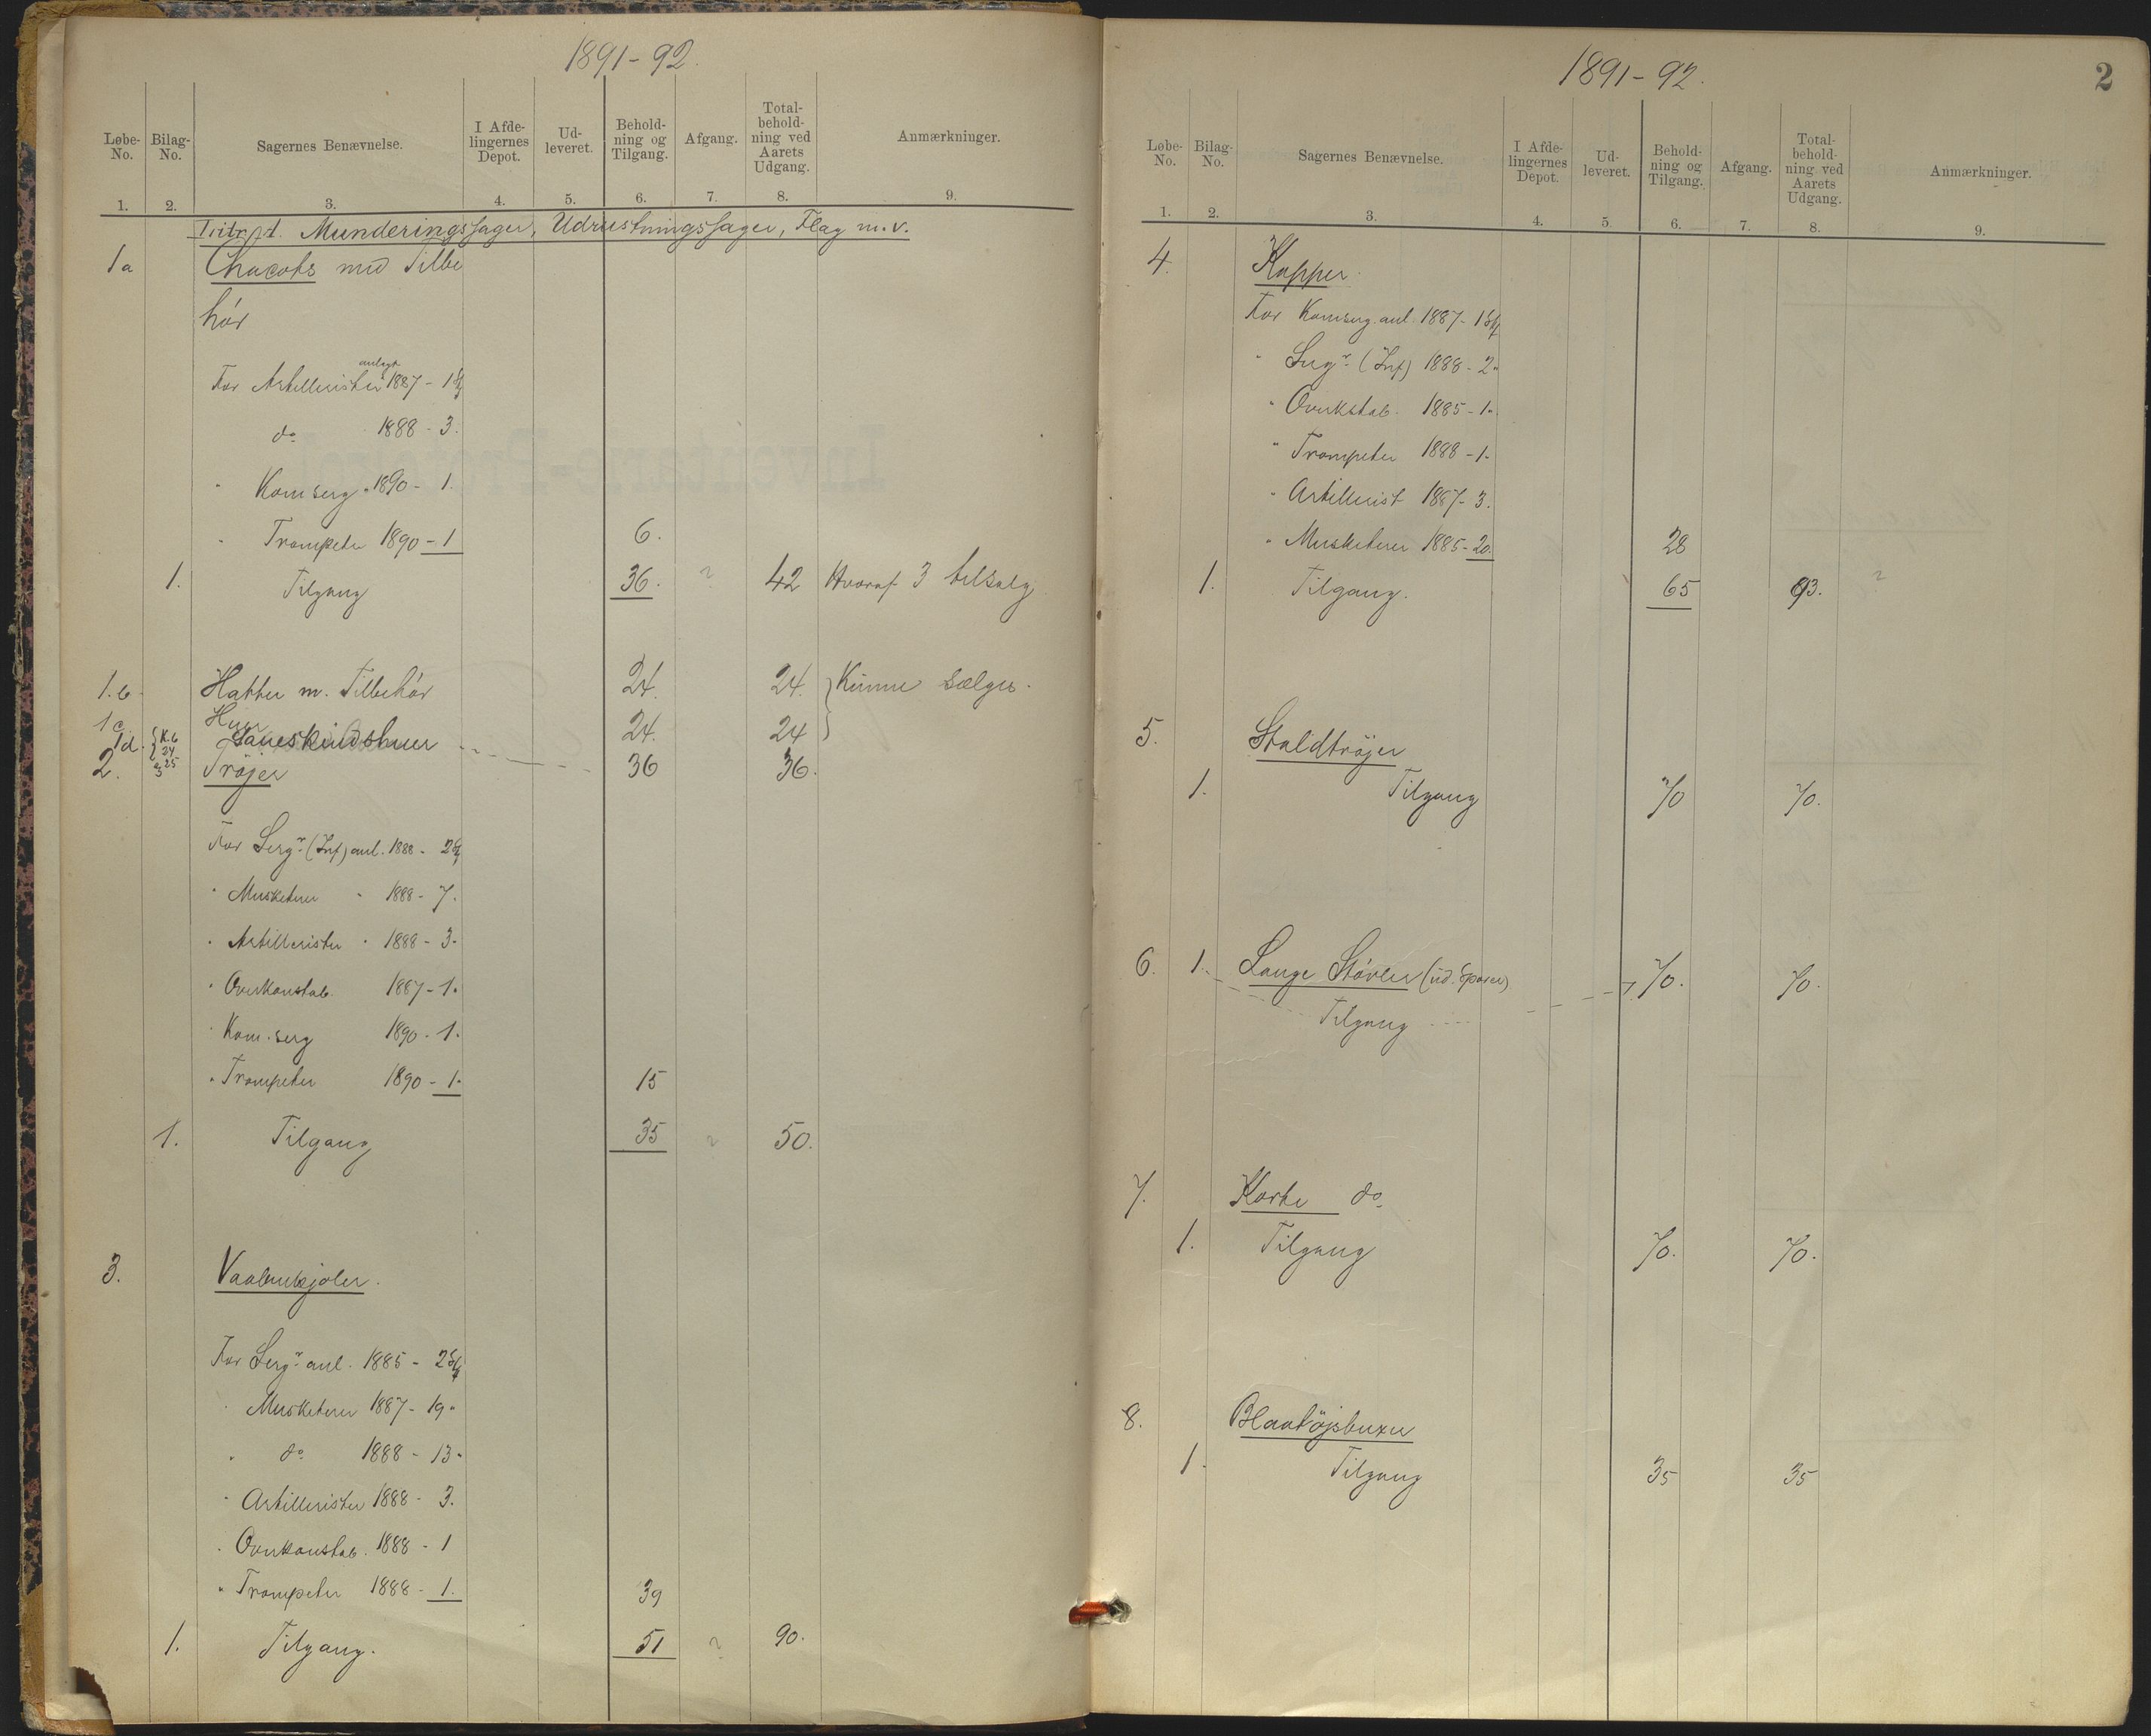 1891-92.
Løbe-No. Bilag-No. Sagernes Benævnelse. I Afdelingernes Depot. Udleveret. Beholdning og Tilgang. Afgang. Totalbeholdning ved Aarets Udgang. Anmærkninger.
1. 2. 3. 4. 5. 6. 7. 8. 9.
Munderingssager, Udrustningssager, Flag m.v.
1a Chacots med Tilbe
hör
anlagt
For Artillerister 1887 - 1
do 1888 - 3.
" Kom serg " 1890 - 1.
" Trompeter 1890 - 1 6.
1. Tilgang 36. 42 Hvoraf 3 tilsalg
1.b. Hatter m. Tilbehör 24. 24. Kunne sælges.
1c Huer 24. 24
1d. K.6 24 25 Saueskindshuer 36 36.
2. 3 Tröjer
For Sergr (Inf) anl. 1888 - 2
" Musketerer " 1888 - 7.
" Artillerister " 1888 - 3.
" Overkonstab. 1887 - 1.
" Kom. serg 1890 - 1.
" Trompeter 1890 - 1. 15
1. Tilgang 35 50.
3. Vaabenkjoler.
For Sergr anl. 1885 - 2
" Musketerer 1887 - 19"
" do 1888 - 13"
" Artillerister 1888 - 3.
" Overkonstab. 1888 - 1
" Trompeter 1888 - 1. 39
1. Tilgang. 51 90.
1891-92.
2
Løbe-No. Bilag-No. Sagernes Benævnelse. I Afdelingernes Depot. Udleveret. Beholdning og Tilgang. Afgang. Totalbeholdning ved Aarets Udgang. Anmærkninger.
1. 2. 3. 4. 5. 6. 7. 8. 9.
4. Kapper.
For Komserg. anl. 1887 - 1
" Sergr (Inf) 1888 - 2"
" Overkstab. 1885 - 1"
" Trompeter 1888 - 1"
" Artillerist 1887 - 3.
" Musketerer 1885 - 20. 28
1. Tilgang. 65 93.
5. Staldtröjer
1. Tilgang 70 70.
6. 1. Lange Stövler (ud. Sporer) 70. 70.
Tilgang
7. Korte do
1. Tilgang 70. 70.
8. Blaatöjsbuxer
1. Tilgang 35 35